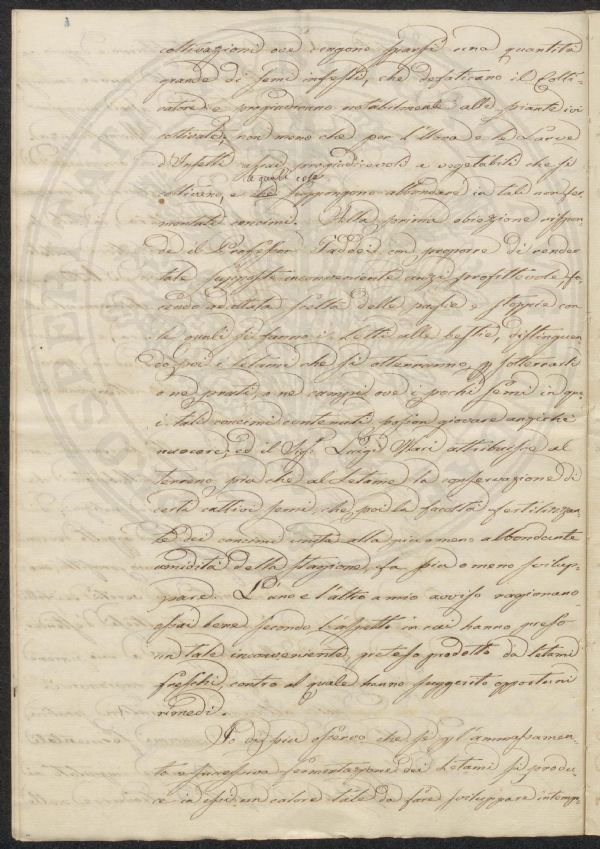 coltivazioni ove vengono sparsi una quantità
grande di semi infesti, che defaticano il Colti-
vatore e pregiudicano notabilmente alle piante ivi
coltivate, non meno che per l'Uova e le Larve
d'Insetti assai pregiudicievoli a vegetabili che si
le quali cose
coltivano, e si suppongono abbondare in tali non fer-
mentati concimi. Alla prima obiezione rispon-
de il Professor Taddei con proporre di render
tale supposto inconveniente anzi profittevole, fa-
cendo adattata scelta delle paglie e stoppie con
le quali si fanno i Letti alle bestie, distinguen-
do poi i Letami che si otterranno p sotterrarli
o ne prati, o ne campi ove i pochi semi in que-
i tali concimi contenuti possan giovare anzichè
nuocere, ed il Sigr. Luigi Mari attribuisce al
terreno più che al Letame la conservazione di
certi cattivi semi, che poi la facoltà fertilizzan-
te dei concimi unita alla più o meno abbondante
umidità della stagione, fa più o meno svilup-
pare. L'uno e l'altro a mio avviso ragionano
assai bene secondo l'aspetto in cui hanno preso
un tale inconveniente, preteso prodotto da letami
freschi, contro al quale hanno suggerito opportuni
rimedi.
Io di più osservo che se p l'ammassamen-
to e successiva fermentazione dei Letami si produ-
ce in essi un calore tale da fare sviluppare intemp-